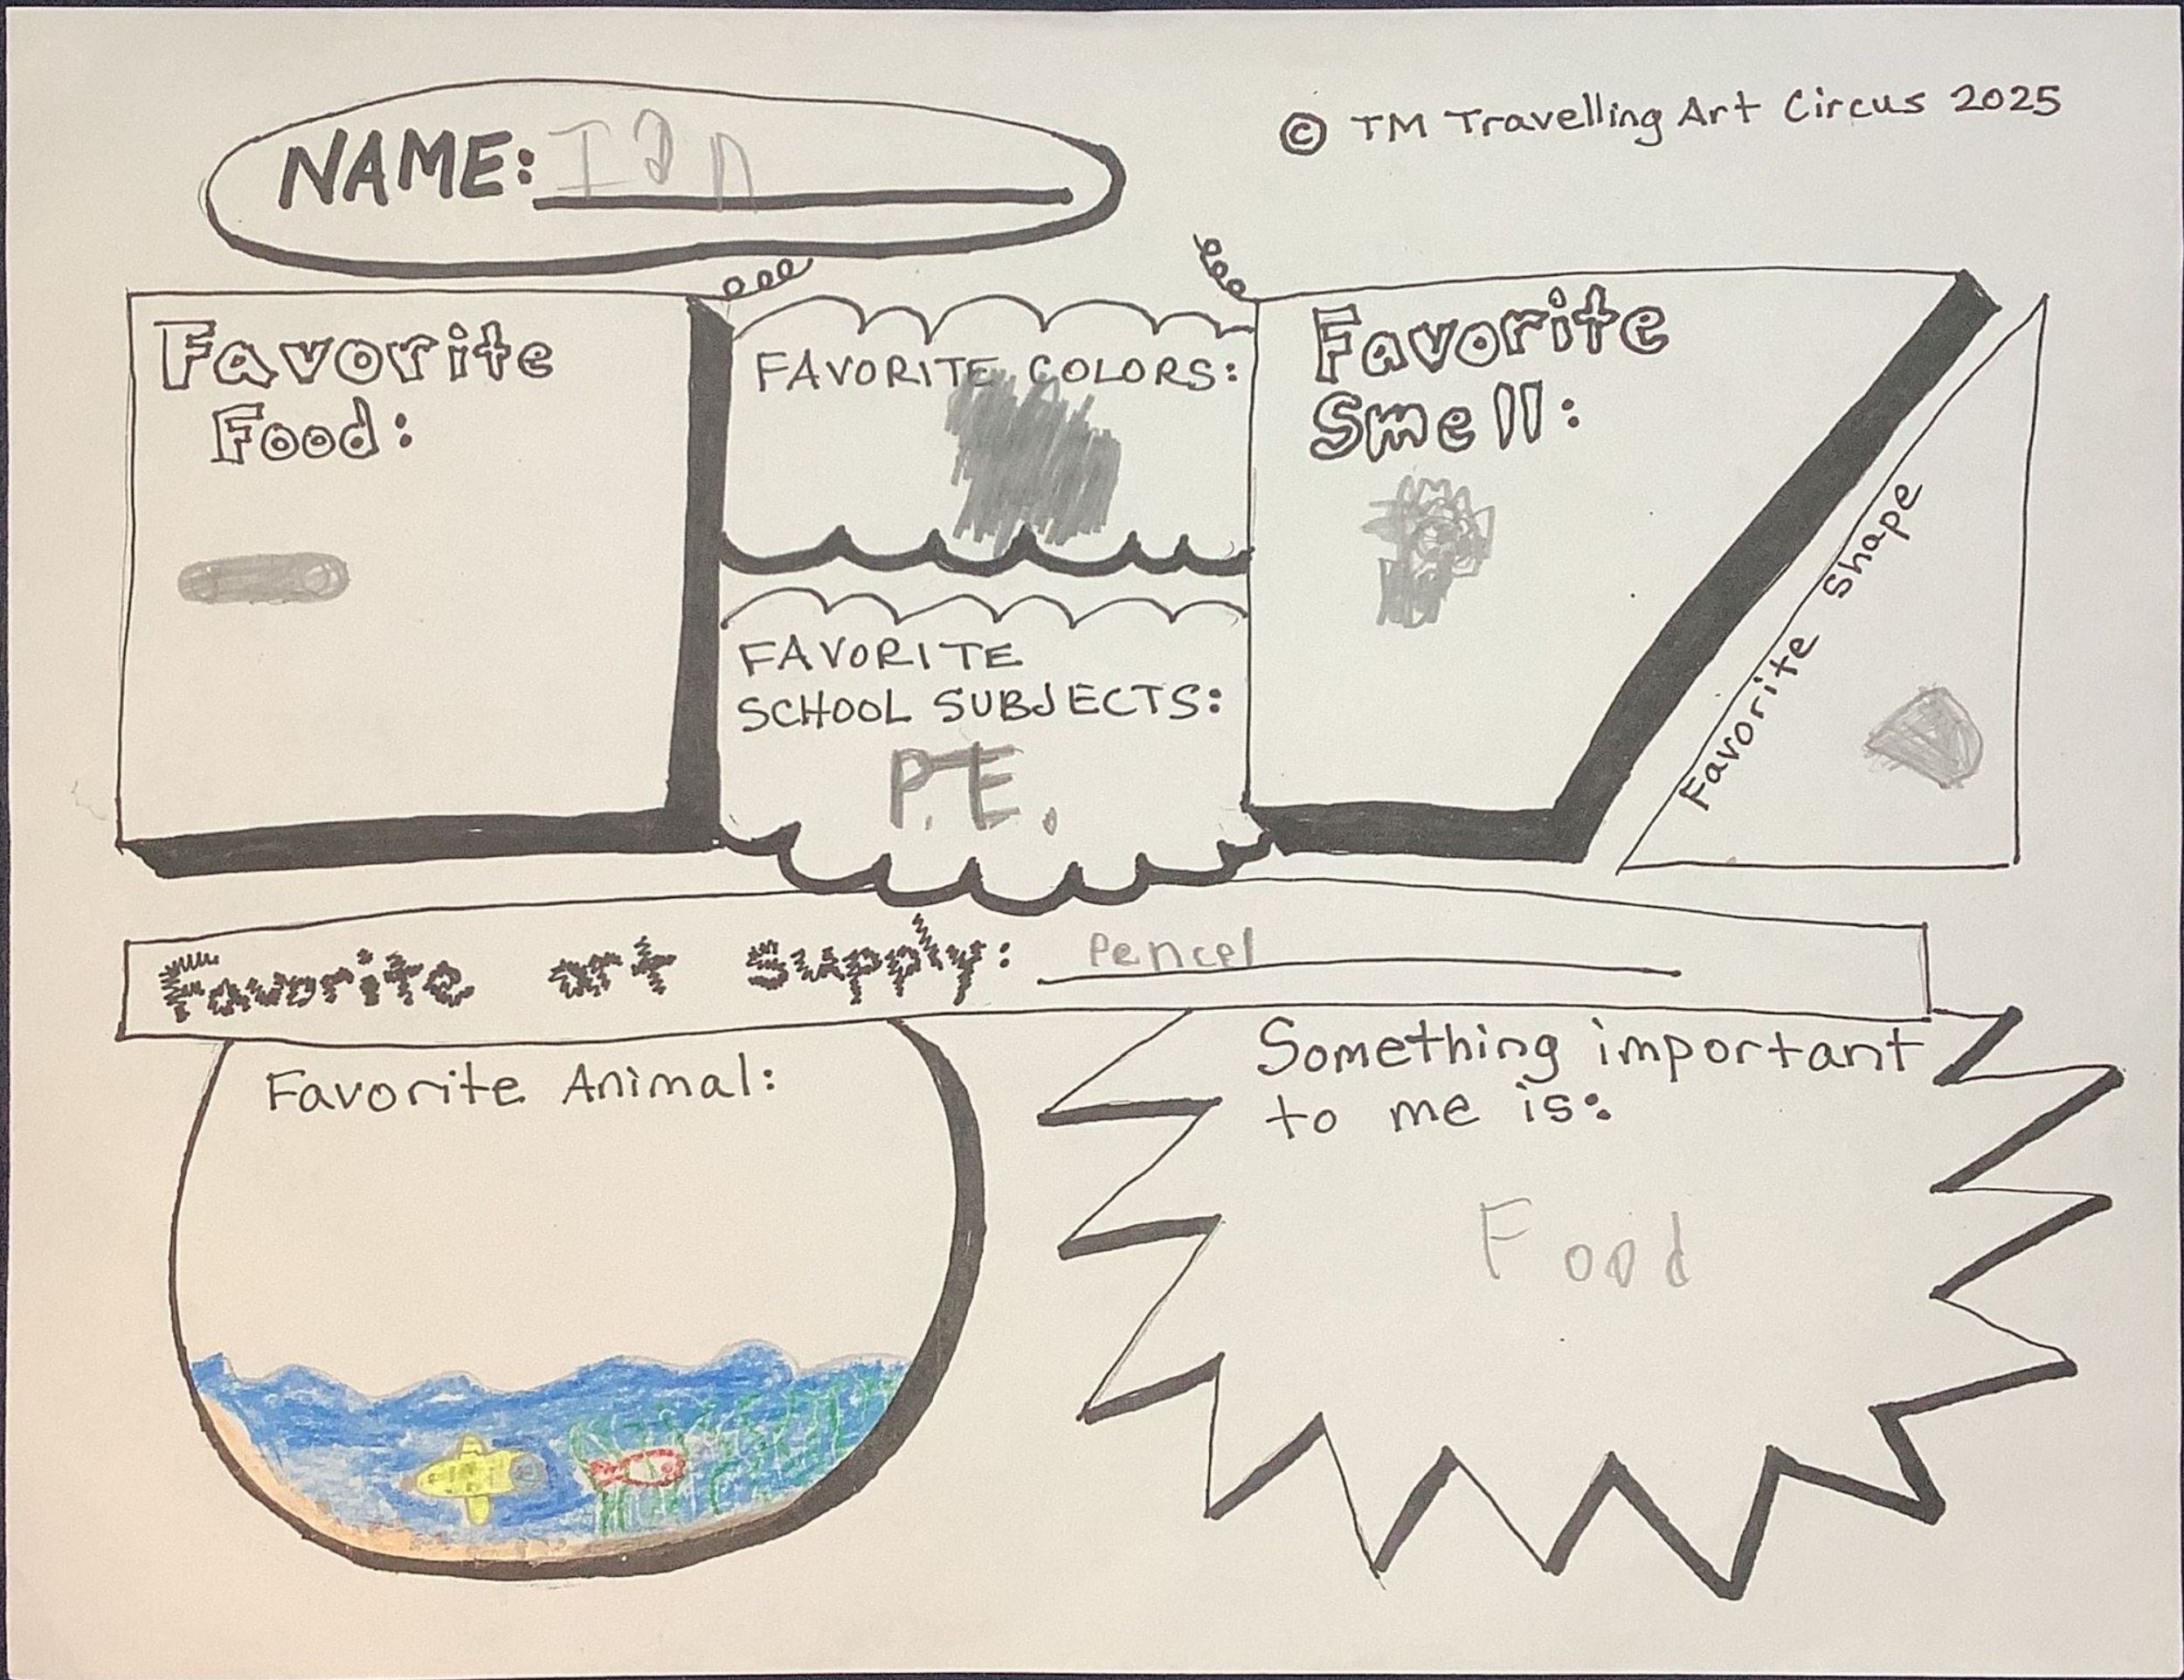 © TM Travelling Art Circus 2025
NAME: Ian
Favorite
Food:
FAVORITE COLORS:
FAVORITE
SCHOOL SUBJECTS:
P.E.
Favorite
Smell:
Favorite Shape
Favorite art Supply: Pencel
Favorite Animal:
Something important
to me is:
Food